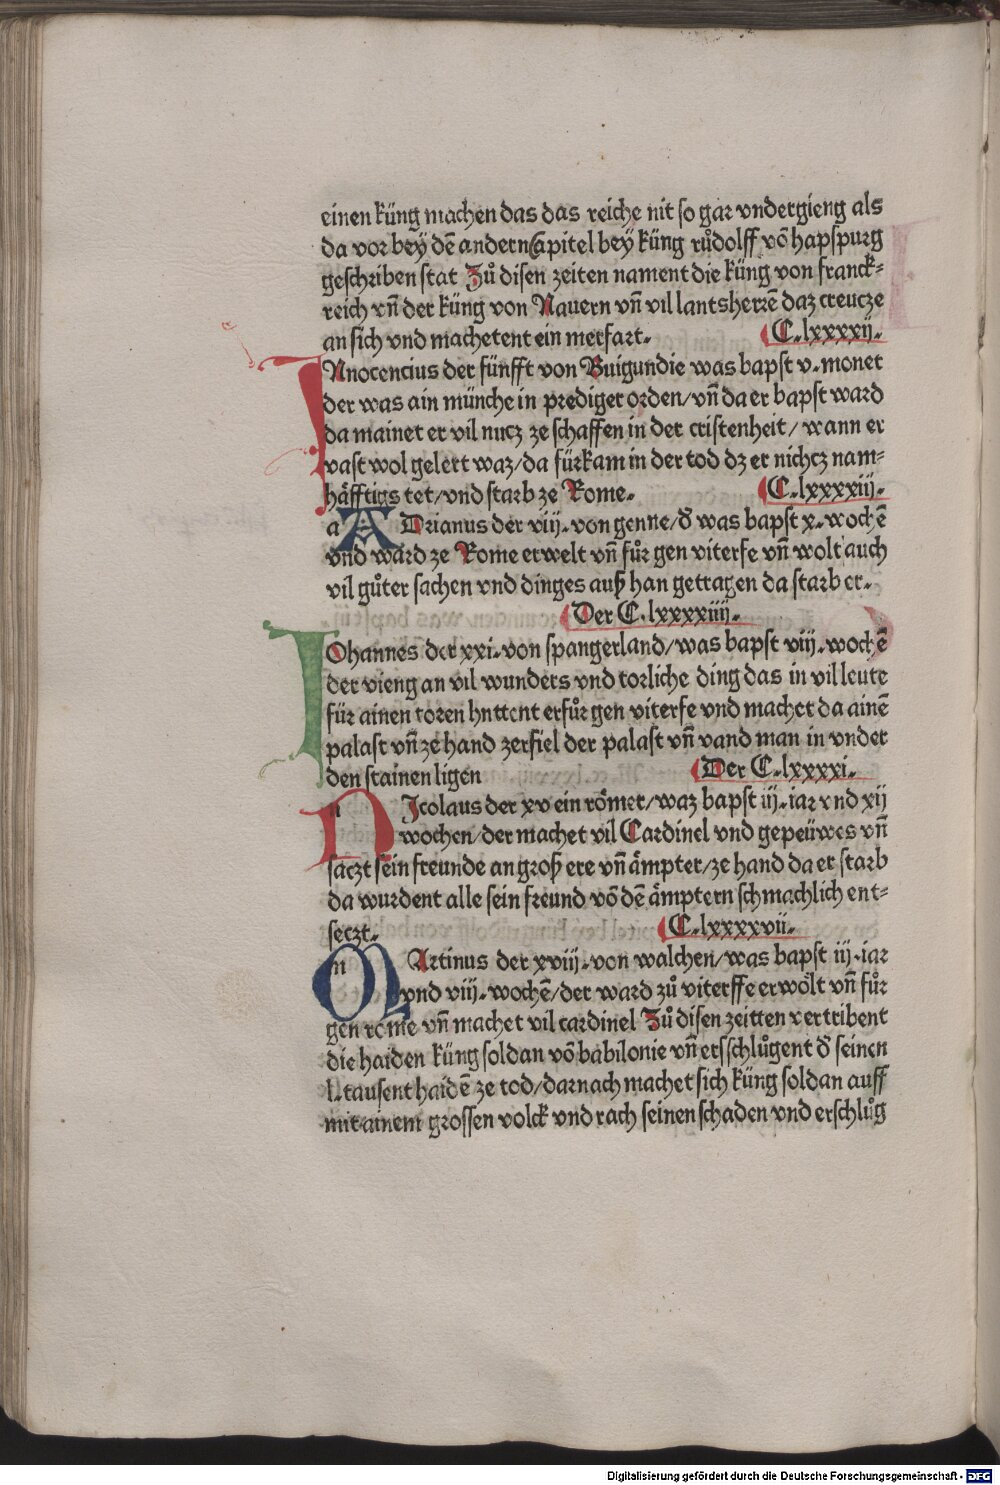 einen küng machen das das reiche nit so gar vndergieng als
da vor bey dē andern Capitel bey küng růdolff vō hapspurg
geschriben stat Zů disen zeiten nament die küng von franck⸗
reich vn̄ der küng von Nauern vn̄ vil lantsherrē daz creucze
an sich vnd machetent ein merfart. C.lxxxxij.
INnocencius der fünfft von Buigundie was bapst v.monet
der was ain münche in prediger orden/vn̄ da er bapst ward
da mainet er vil nucz ze schaffen in der cristenheit/wann er
vast wol gelert waz/da fürkam in der tod dz er nichcz nam⸗
häfftigs tet/vnd starb ze Rome. C.lxxxxiij.
a ADrianus der viij.von genne/d̄ was bapst x.wochē
vnd ward ze Rome erwelt vn̄ fůr gen viterfe vn̄ wolt auch
vil gůter sachen vnd dinges auß han getragen da starb er.
Der C.lxxxxiiij.
IOhannes der xxi.von spangerland/was bapst viij.wochē
der vieng an vil wunders vnd torliche ding das in vil leute
für ainen toren hnttent erfůr gen viterfe vnd machet da ainē
palast vn̄ ze hand zerfiel der palast vn̄ vand man in vnder
den stainen ligen Der C.lxxxxi.
n NIcolaus der xv ein römer/waz bapst iij.iar vnd xij
wochen/der machet vil Cardinel vnd gepeüwes vn̄
saczt sein freunde an groß ere vn̄ ämpter/ze hand da er starb
da wurdent alle sein freund vō dē ämptern schmachlich ent⸗
seczt. C.lxxxxvii.
m MArtinus der xviij.von walchen/was bapst iij.iar
vnd viij.wochē/der ward zů viterffe erwölt vn̄ fůr
gen rome vn̄ machet vil cardinel Zů disen zeitten vertribent
die haiden küng soldan vō babilonie vn̄ ersschlůgent d̄ seinen
l.tausent haidē ze tod/darnach machet sich küng soldan auff
mit ainem grossen volck vnd rach seinen schaden vnd erschlůg
Digitalisierung gefördert durch die Deutsche Forschungsgemeinschaft - DFG